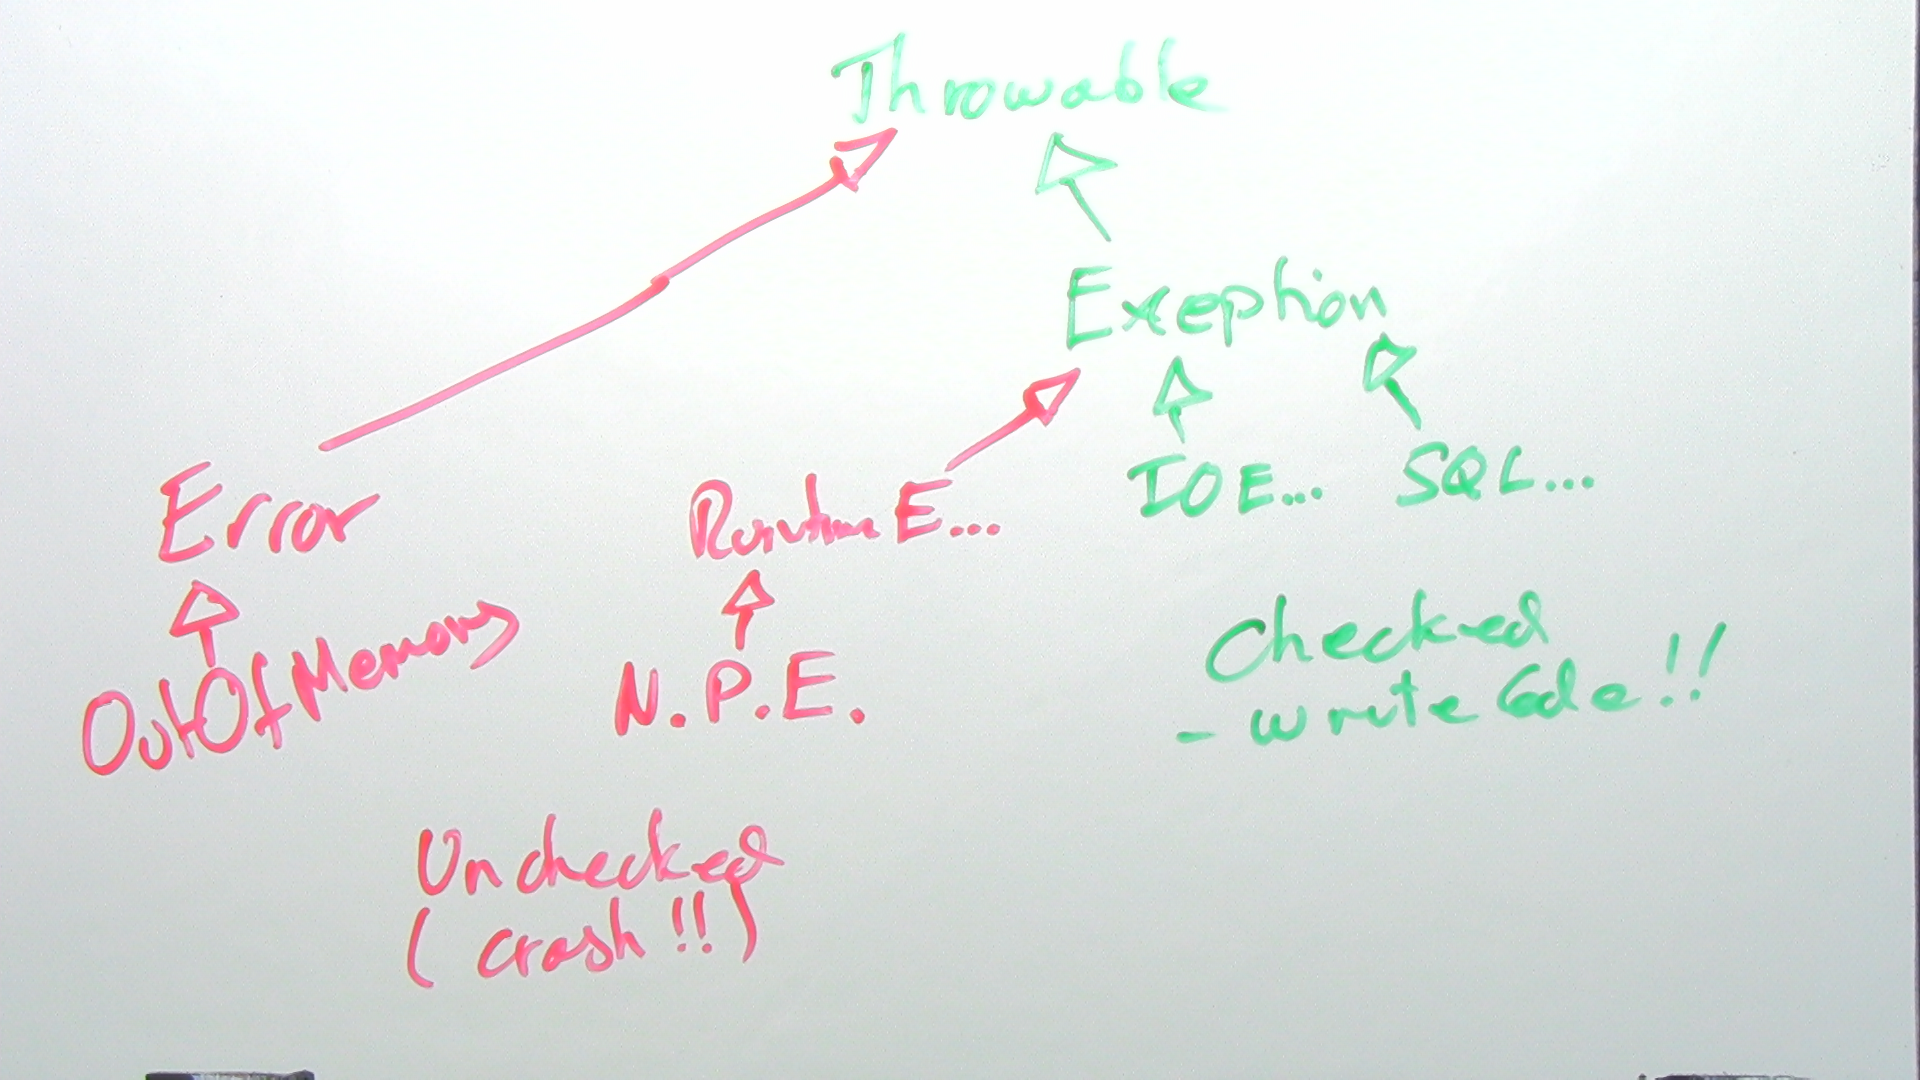 Throwable
Exeption
Error
Runtime E...
IOE...
SQL...
OutOfMemory
N.P.E.
Checked
- write Code!!
Unchecked
(crash!!)